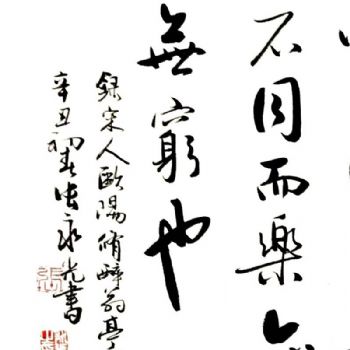 不同而樂亦
無窮也
錄宋人歐陽脩醉翁亭
辛丑初春張永光書